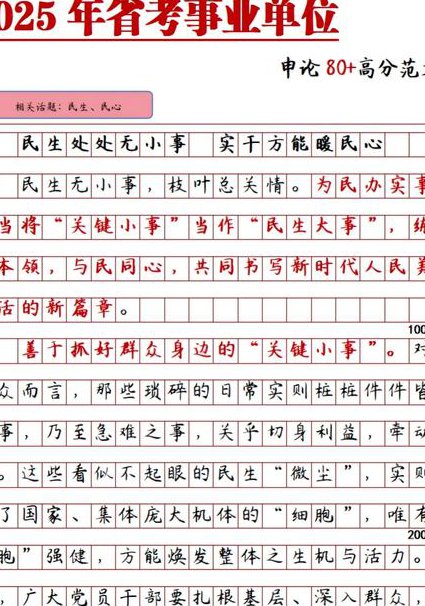 2025年省考事业单位
申论80+高分范
相关话题：民生、民心
民生处处无小事 实干方能暖民心
民生无小事，枝叶总关情。为民办实事
当将“关键小事”当作“民生大事”，练
本领，与民同心，共同书写新时代人民美
活的新篇章。
100
善于抓好群众身边的“关键小事”。对
众而言，那些琐碎的日常实则桩桩件件皆
事，乃至急难之事，关乎切身利益，牵动
。这些看似不起眼的民生“微尘”，实则
了国家、集体庞大机体的“细胞”，唯有
200
胞”强健，方能焕发整体之生机与活力。
，广大党员干部要扎根基层、深入群众，